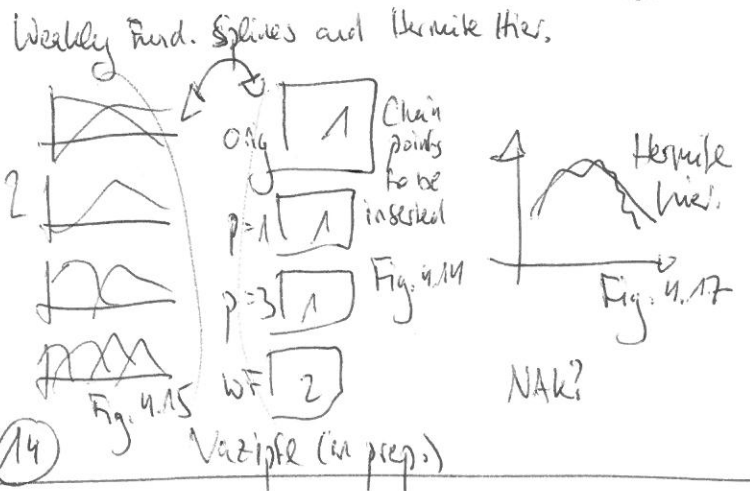 Weakly Fund. Splines and Hermite Hier.
2
orig 1
Chain
points
to be
inserted
p=1 1
p=3 1
WF 2
Fig. 4.14
Fig. 4.15
Hermite
hier.
Fig. 4.17
NAK?
14
(in prep.)